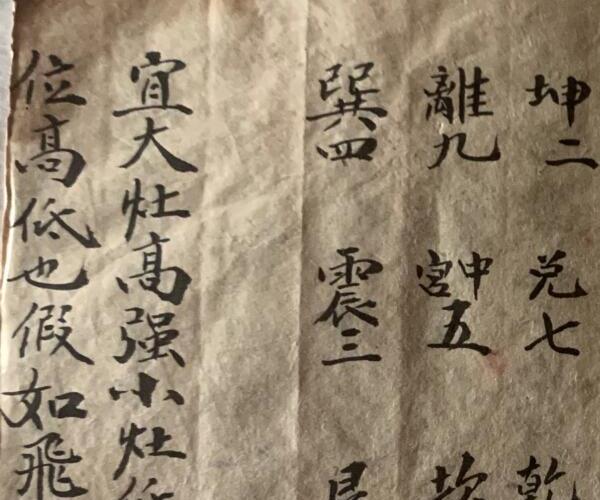 坤二 兑七 乾
離九 中宮五 坎
巽四 震三 艮
宜大灶高强小灶低
位高低也假如飛